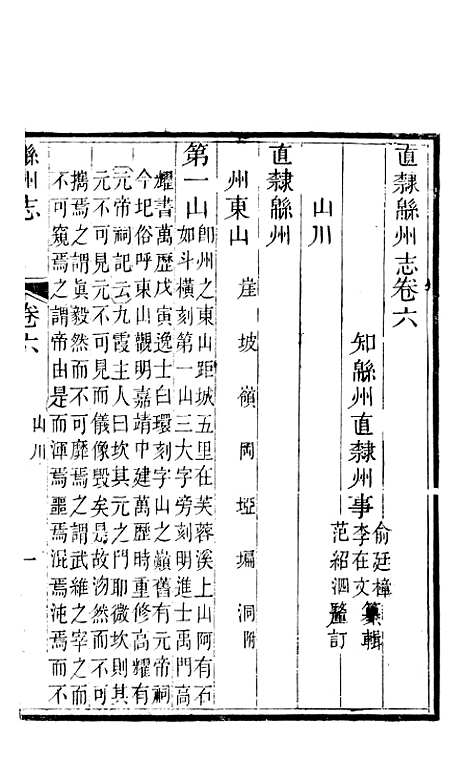 直隸緜州志卷六
知緜州直隸州事
俞廷樟
李在文
纂輯
范紹泗
鑒訂
山川
直隸緜州
州東山 崖 坡 嶺 岡 埡 塥 洞附
第一山
卽州之東山距城五里在芙蓉溪上山阿有石
如斗橫刻第一山三大字旁刻明進士禹門高
耀書萬歷戊寅逸士白環刻字山之巔舊有元帝祠
今圯俗呼東山觀明嘉靖中建萬歷時重修高耀有
元帝祠記云九霞主人曰坎其元之門耶微坎則其
元不可見元不可見而儀像毀矣是故沕然而不可
擕焉之謂眞毅然而不可靡焉之謂武維之宰之而
不可窺焉之謂帝由是而渾焉噩焉混焉沌焉而不
緜州志
卷六
山川
一